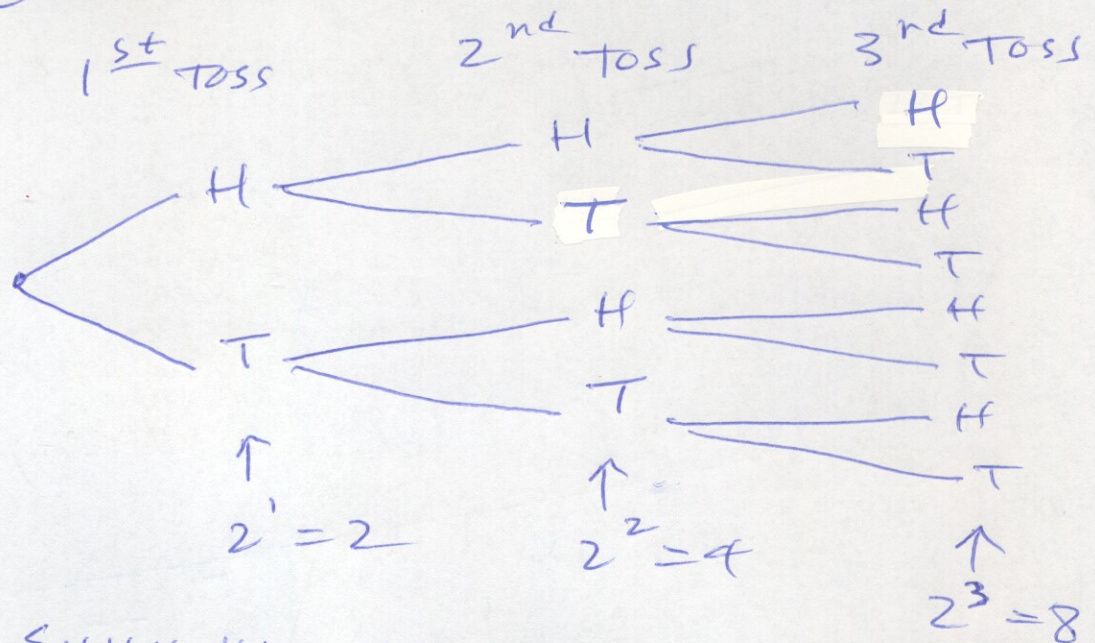 1st Toss 2nd Toss 3rd Toss
H
H
H T
T H
T
H H
T T
T H
T
↑ ↑
2^1 = 2 2^2 = 4 ↑
2^3 = 8